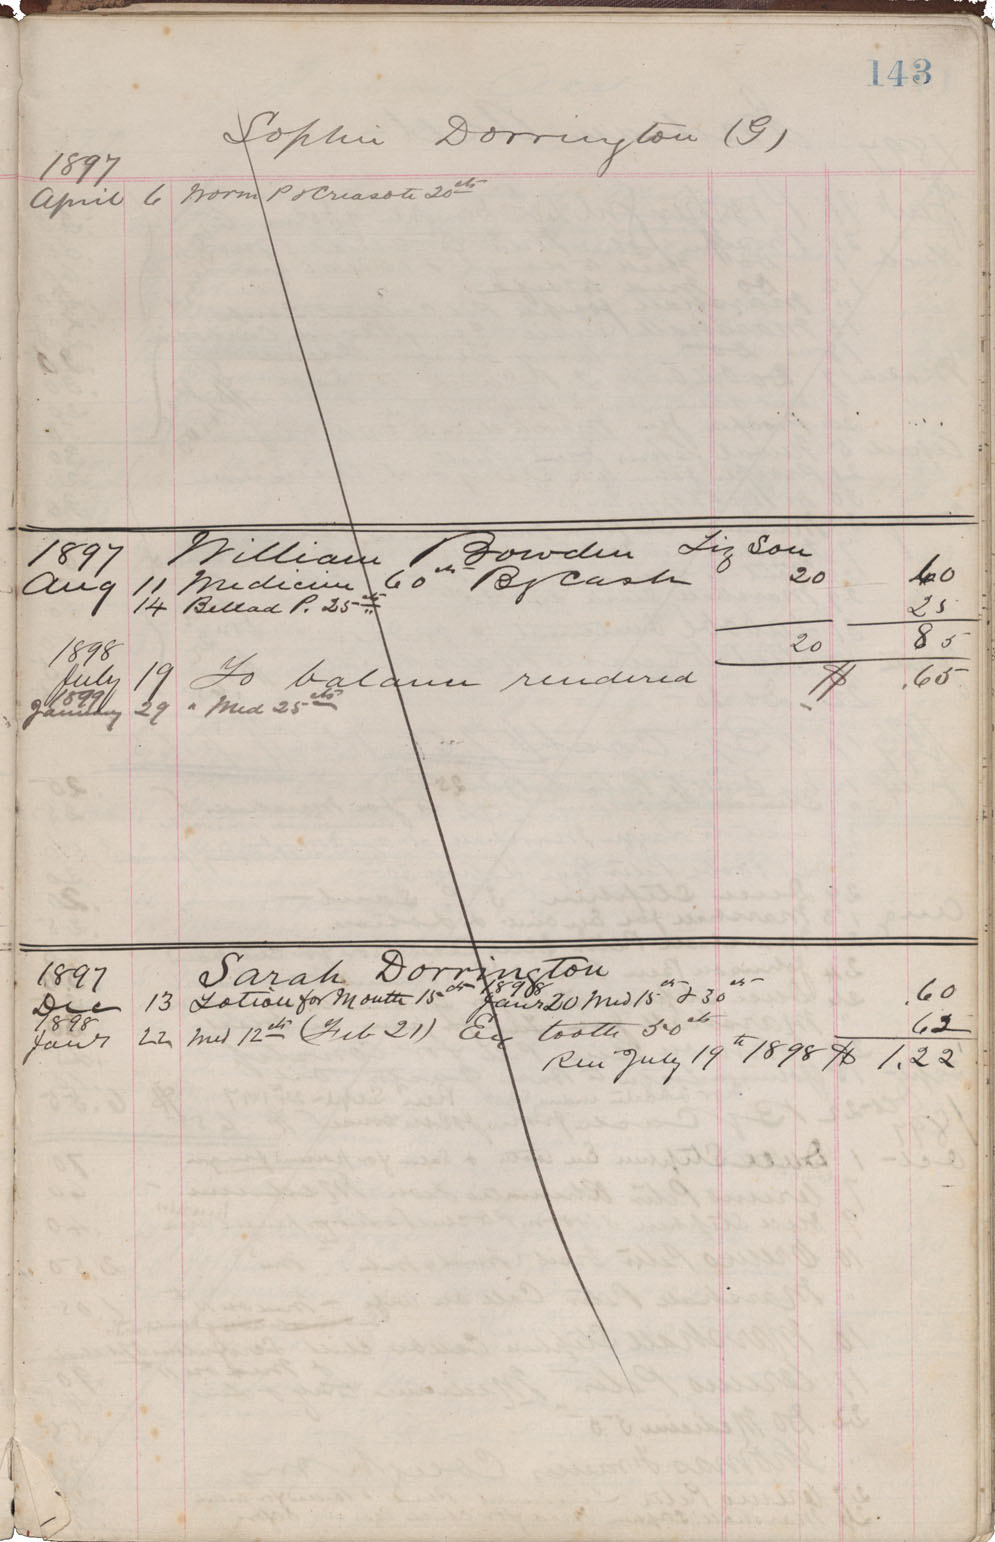 143
Sophia Dorrington (G)
1897
April 6 Worm P & Creasote 20cts
1897 William Bowden Liz Son
Aug 11 Medicine 60cts By Cash 20 60
14 Bellad P. 25cts 25
20 85
1898
July 19 To balance rendered $ .65
1899
January 29 " Med 25cts
1897 Sarah Dorrington
Dec 13 Lotion for Mouth 15cts 1898 Janr 20 Med 15cts & 30cts .60
1898
Janr 22 Med 12cts (Feb 21) Ex tooth 50cts 62
Ren July 19th 1898 $ 1.22